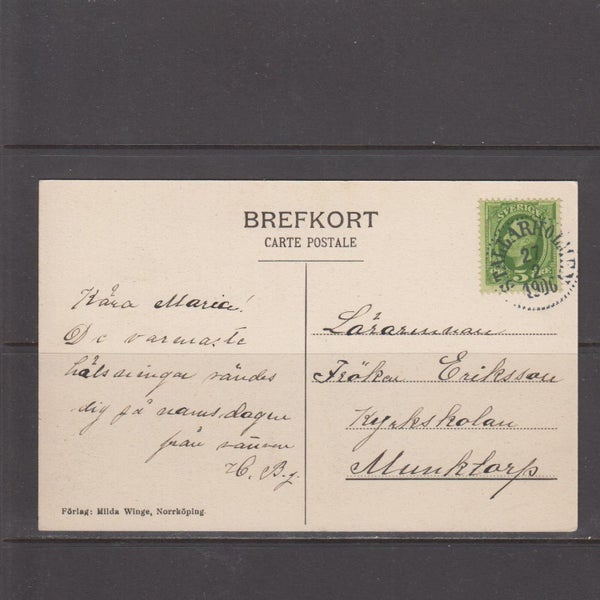 BREFKORT
CARTE POSTALE
SVERIGE
5 ÖRE
STALLARHOLMEN
1906
Kära Maria!
De varmaste
hälsningar sändes
dig på namsdagen
från vännen
H. B-g.
Lärarinnan
Fröken Eriksson
Kyrkskolan
Munktorp
Förlag: Milda Winge, Norrköping